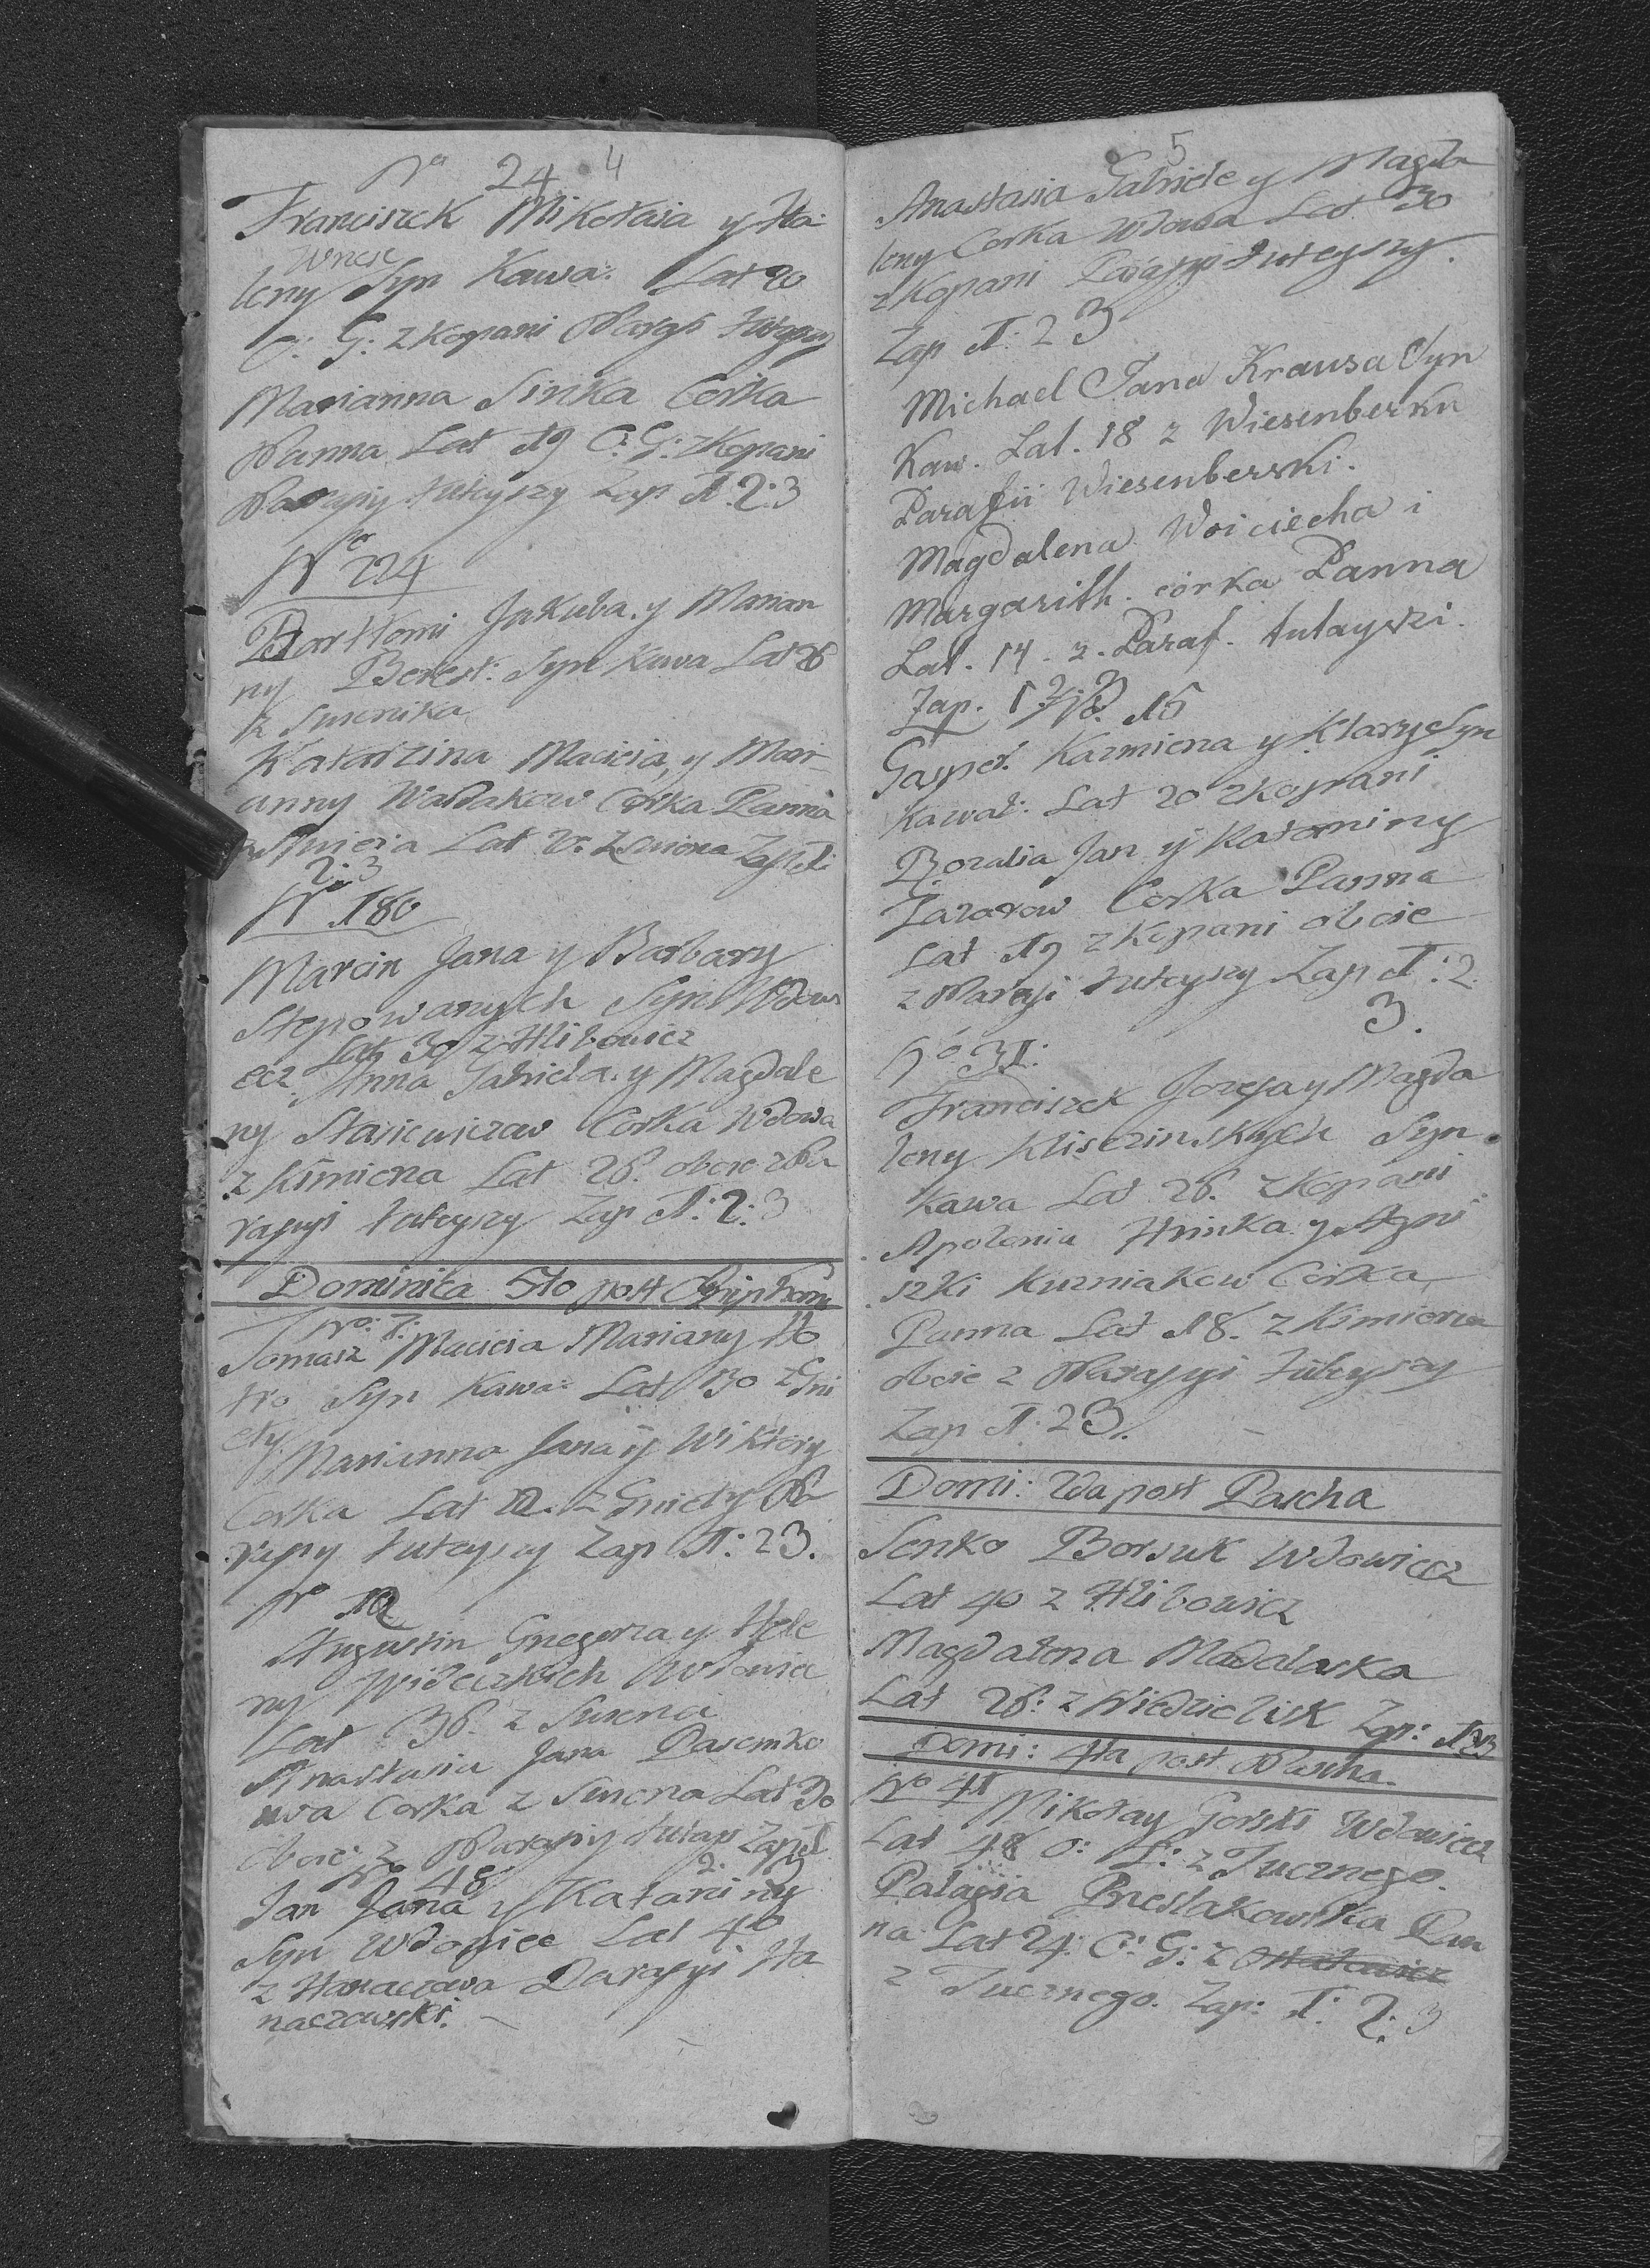 No 24 4
Franciszek Mikołaia y Ha
Wnesc
leny Syn Kawa: Lat 20
O: G: z Kopani Parafi tuteyszy
Marianna Sinka Corka
Panna Lat 19 O: G: z Kopani
Parafiy tuteyszy Zap 1: 2: 3
No 224
Bartłomi Jakuba y Marian
ny Berest: Syn Kawa Lat 26
z Swienika
Katarzina Macieia, y Mari
anny Wasakow Corka Panna
Lat Zap 1:
2: 3
No 180
Marcin Jana y Barbary
Stepowanych Syn Wdow
Lat 30 z Hlibowicz
ecz Anna Gabriela y Magdale
ny Stasiewiczow Corka Wdowa
z Kimierza Lat 26. oboie z Pa
rafiyi tuteyszy Zap 1: 2: 3
Dominica 5to post Epiphani
No: 1:
Tomasz Macieia Mariany Ho
tko Syn Kawa: Lat 30 z Gni
ely
Marianna Jana y Wiktory
Corka Lat 22. z Gniely Pa
rafiy tuteyszy Zap 1: 2 3.
No 12
Augustin Gregorza y Hele
ny Wideckich Wdowiec
Lat 36. z Swierza
Anastasia Jana Pasemko
wa Corka z Swierza Lat 30
oboie: z Parafiy tutay Zap 1
2: 3
No 48
Jan Jana y Kataniny
Syn Wdowiec Lat 40
z Hanaczowa Parafyi Ha
naczowski.
5
Anastasia Gabriele y Magda
leny Corka Wdowa Lat 30
z Kopani Parafyi tuteyszy.
Zap 1: 2 3
Michael Jana Krausa Syn
Kaw. Lat. 18 z Wiesenberku
Parafii Wiesenberski.
Magdalena Woiciecha i
Margarith. córka Panna
Lat. 14. z. Paraf. tutayszi.
Zap. 1 2: 3
No. 15
Gasper. Kazmierza y Klary Syn
Kawal: Lat 20 z Kopani
Rozalia Jan y Katarniny
Zazarow Corka Panna
Lat 19 z Kopani oboie
z Parafyi tuteyszy Zap 1: 2.
3.
No 31:
Franciszek Jozefa y Magda
leny Kliszczinskych Syn
Kawa Lat 26. z Kopani
Apolenia Hrinka y Agni
szki Kuzniakow Corka
Panna Lat 18. z Kimierza
oboie z Parafyi tuteyszy
Zap 1: 2 3.
Domi: 2da post Pascha
Senko Borsuk Wdowiecz
Lat 40 z Hlibowicz
Magdalena Madalaska
Lat 26: z Wiedzielisk Zap: 1 2 3
Domi: 4ta post Pascha.
No 41
Mikołay Gorski Wdowiecz
Lat 48 O: L: z Tucznego.
Palagia Preslakowska Pan
na Lat 24: O: G: z
z Tucznego. Zap: 1: 2: 3